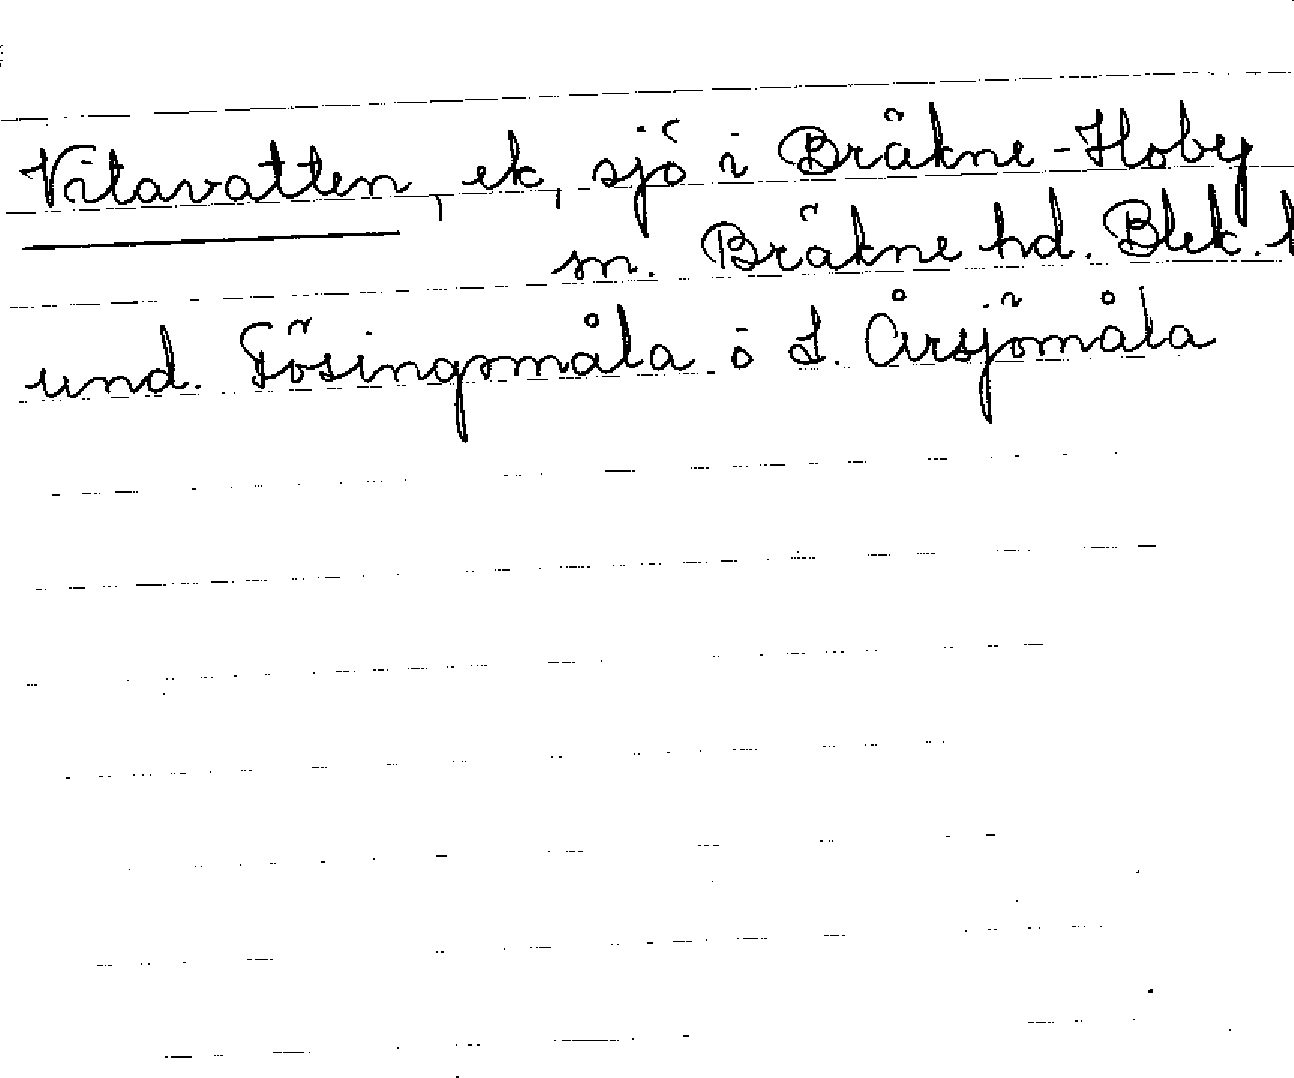 Vitavatten, ek, sjö i Bräkne-Hoby
sn. Bräkne hd. Blek. l
und. Fösingsmåla o L. Årsjömåla